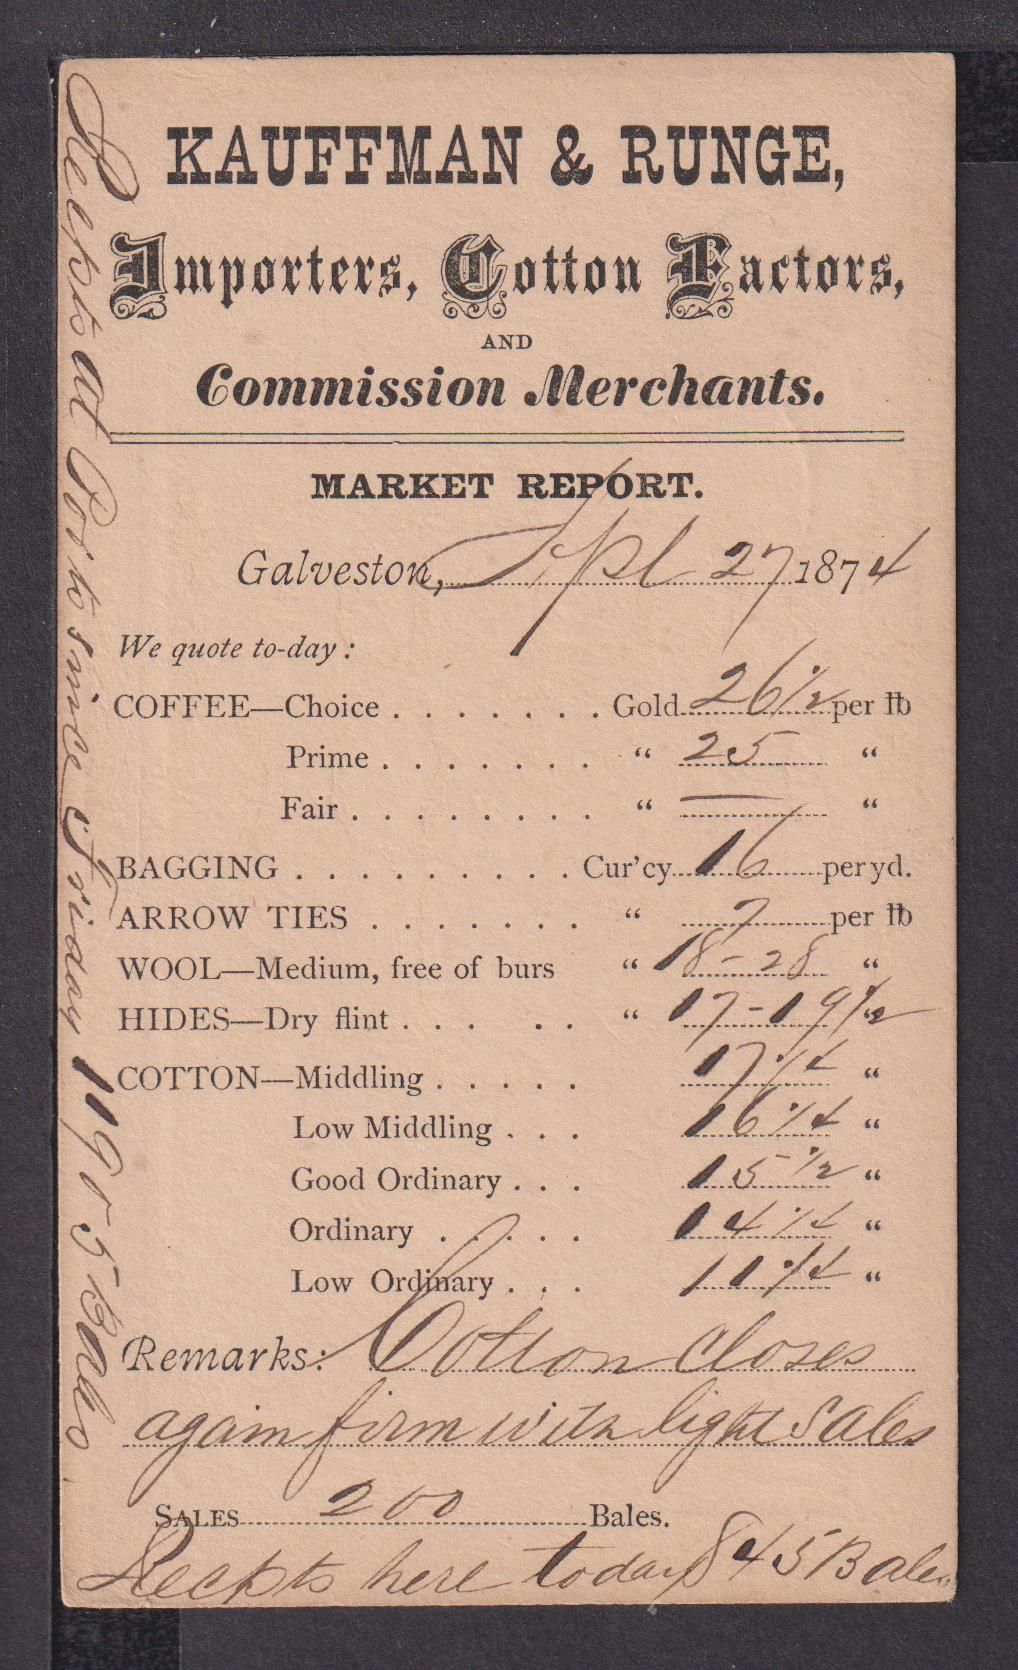 KAUFFMAN & RUNGE,
Importers, Cotton Factors,
AND
Commission Merchants.
MARKET REPORT.
Galveston, Sept 27 1874
We quote to-day:
COFFEE—Choice . . . . . . . Gold 26 1/2 per lb
Prime . . . . . . . " 25 "
Fair . . . . . . . . " — "
BAGGING . . . . . . . . . Cur'cy 16 per yd.
ARROW TIES . . . . . . . " 7 per lb
WOOL—Medium, free of burs " 18-28 "
HIDES—Dry flint . . . . . " 17-19 1/2 "
COTTON—Middling . . . . . 17 1/4 "
Low Middling . . . 16 1/4 "
Good Ordinary . . . 15 1/2 "
Ordinary . . . . . 14 1/4 "
Low Ordinary . . . 11 1/4 "
Remarks: Cotton closes
again firm with light sales
SALES 200 Bales.
Reckts here today 845 Bales
Reckts at Ports since Friday 11905 Bales